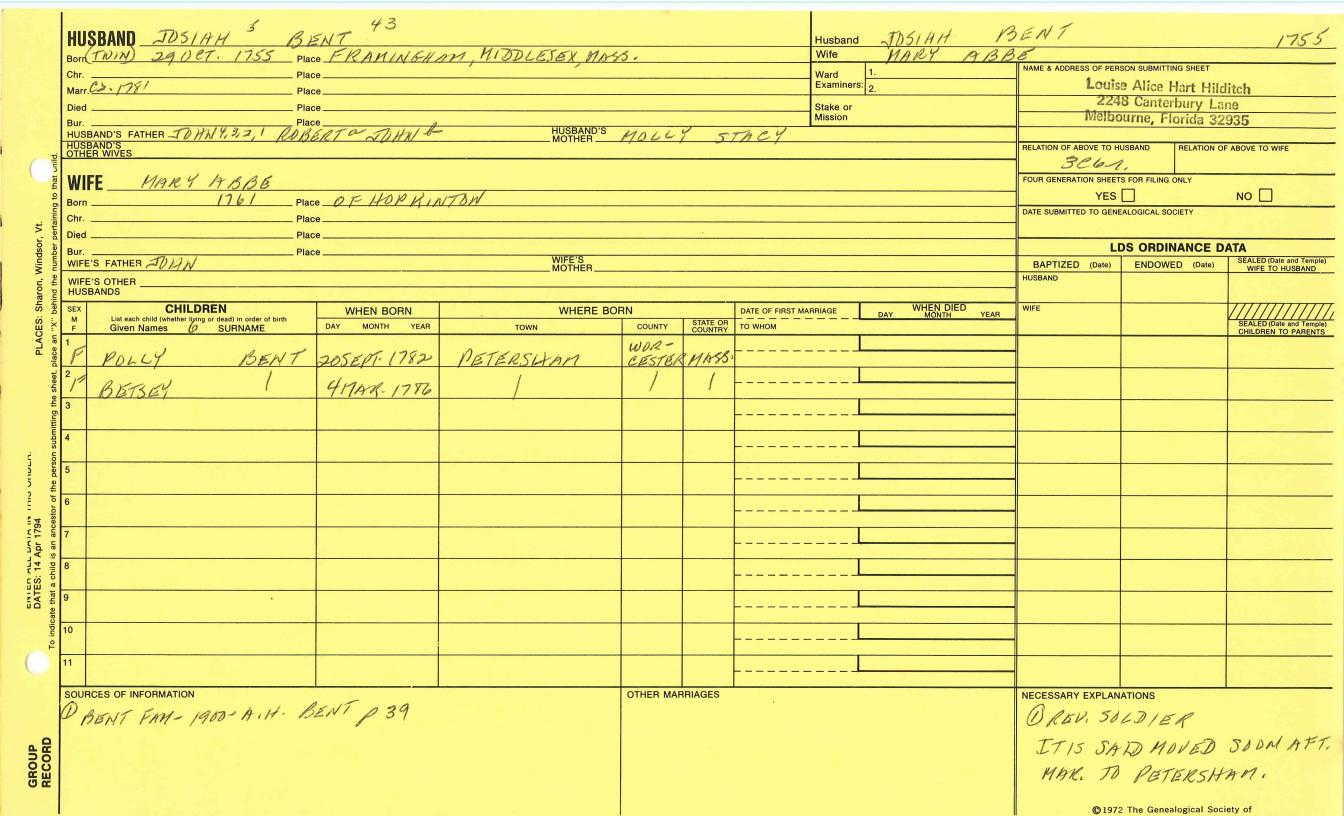 HUSBAND JOSIAH 5 BENT 43
Born (TWIN) 29 OCT. 1755 Place FRAMINGHAM, MIDDLESEX, MASS.
Chr. Place
Marr. Ca. 1781 Place
Died Place
Bur. Place
HUSBAND'S FATHER JOHN 4,3,2,1 ROBERT a JOHN b HUSBAND'S MOTHER MOLLY STACY
HUSBAND'S OTHER WIVES
Husband JOSIAH BENT 1755
Wife MARY ABBE
Ward Examiners: 1.
2.
Stake or Mission
NAME & ADDRESS OF PERSON SUBMITTING SHEET
Louise Alice Hart Hilditch
2248 Canterbury Lane
Melbourne, Florida 32935
RELATION OF ABOVE TO HUSBAND RELATION OF ABOVE TO WIFE
3C6r.
FOUR GENERATION SHEETS FOR FILING ONLY
YES NO
DATE SUBMITTED TO GENEALOGICAL SOCIETY
WIFE MARY ABBE
Born 1761 Place OF HOPKINTON
Chr. Place
Died Place
Bur. Place
WIFE'S FATHER JOHN WIFE'S MOTHER
WIFE'S OTHER HUSBANDS
LDS ORDINANCE DATA
BAPTIZED (Date) ENDOWED (Date) SEALED (Date and Temple) WIFE TO HUSBAND
HUSBAND
WIFE
SEALED (Date and Temple) CHILDREN TO PARENTS
SEX M F CHILDREN WHEN BORN WHERE BORN DATE OF FIRST MARRIAGE WHEN DIED
List each child (whether living or dead) in order of birth
Given Names 6 SURNAME DAY MONTH YEAR TOWN COUNTY STATE OR COUNTRY TO WHOM DAY MONTH YEAR
1 F POLLY BENT 20 SEPT. 1782 PETERSHAM WOR-CESTER MASS.
2 F BETSEY 4 MAR. 1786
3
4
5
6
7
8
9
10
11
SOURCES OF INFORMATION
① BENT FAM - 1900 - A.H. BENT p 39
OTHER MARRIAGES
NECESSARY EXPLANATIONS
① REV. SOLDIER
IT IS SAID MOVED SOON AFT.
MAR. TO PETERSHAM.
©1972 The Genealogical Society of
GROUP RECORD
DATES: 14 Apr 1794
PLACES: Sharon, Windsor, Vt.
To indicate that a child is an ancestor of the person submitting the sheet, place an "X" behind the number pertaining to that child.